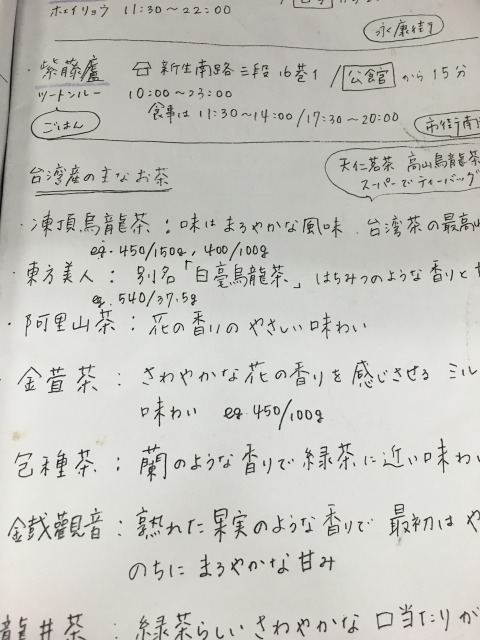 ホェイリョウ 11:30〜22:00
永康街
・紫藤廬 新生南路三段16巷1 / 公館 から15分
ツートンルー 10:00〜23:00
ごはん 食事は11:30〜14:00/17:30〜20:00
市街南
台湾産の主なお茶
天仁茗茶 高山烏龍茶
スーパーでティーバッグ
・凍頂烏龍茶：味はまろやかな風味．台湾茶の最高
eg. 450/150g, 400/100g
・東方美人：別名「白毫烏龍茶」はちみつのような香りと
eg. 540/37.5g
・阿里山茶：花の香りのやさしい味わい
・金萱茶：さわやかな花の香りを感じさせる ミル
味わい eg 450/100g
包種茶：蘭のような香りで緑茶に近い味わい
鉄觀音：熟れた果実のような香りで 最初は
のちにまろやかな甘み
龍井茶：緑茶らしいさわやかな口当たりが